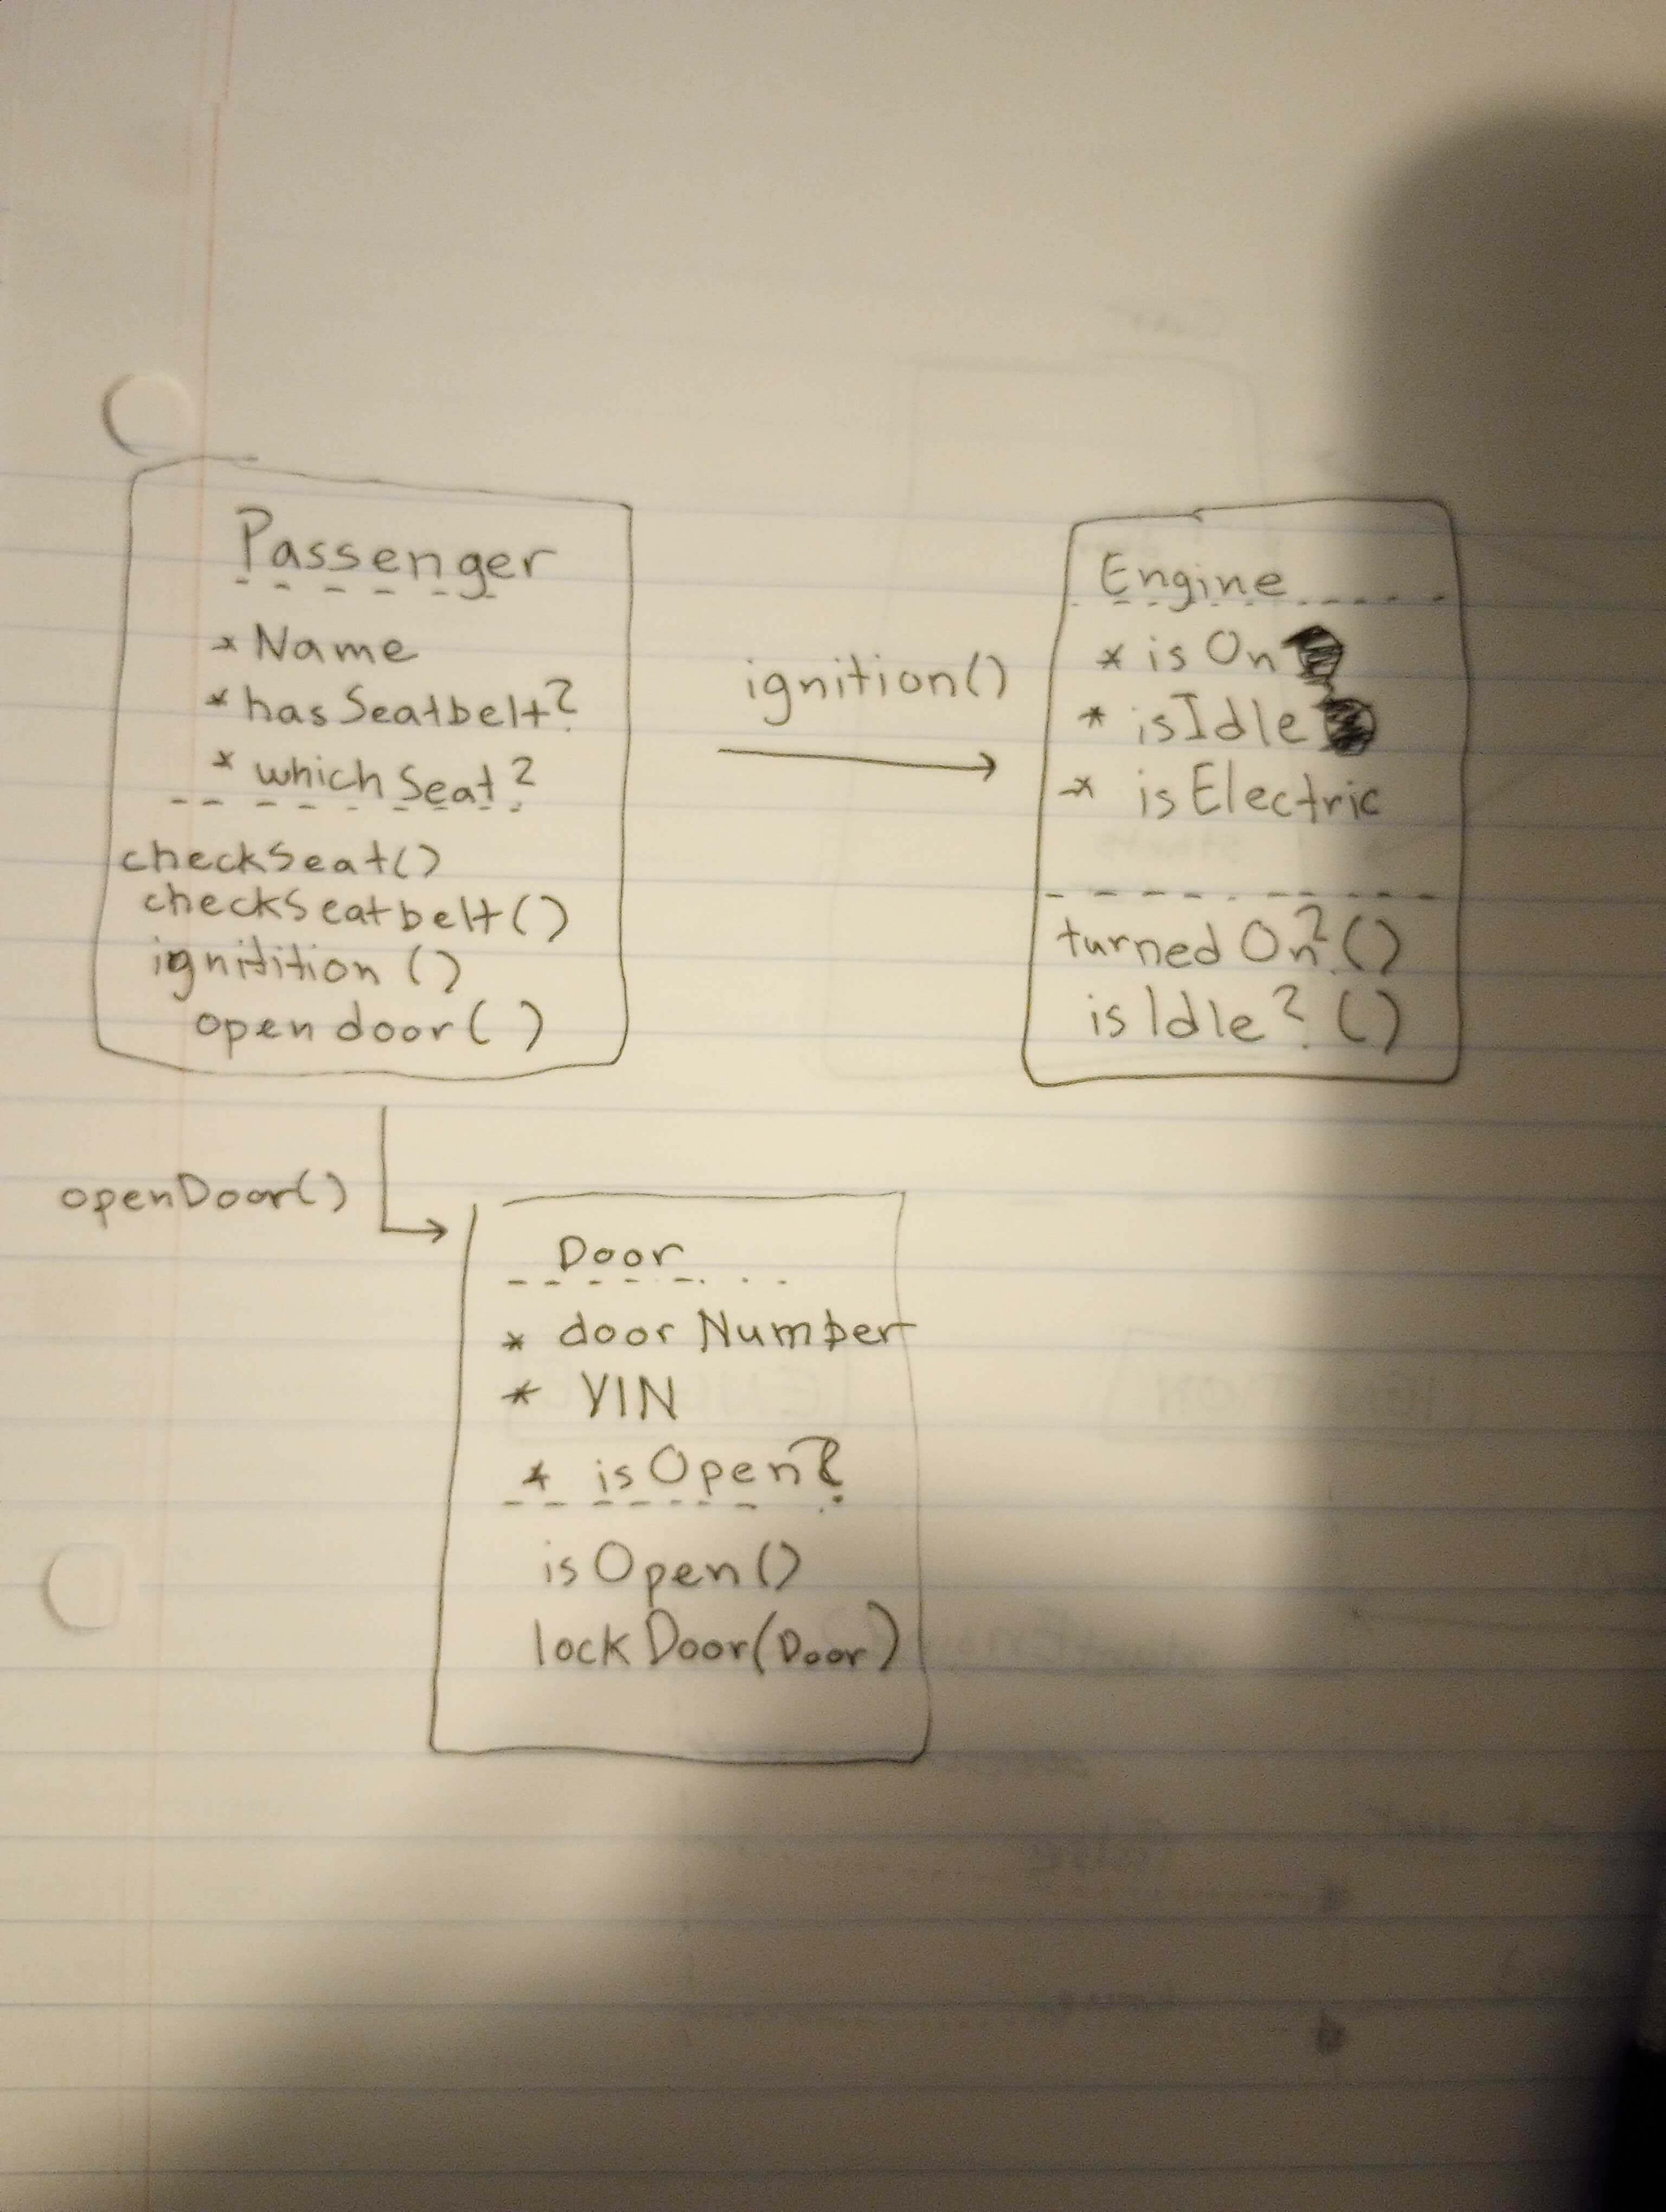 Passenger
* Name
* hasSeatbelt?
* whichSeat?
checkSeat()
checkSeatbelt()
ignitition()
opendoor()
ignition()
Engine
* isOn
* isIdle
* isElectric
turnedOn?()
isIdle?()
openDoor()
Door
* doorNumber
* VIN
* isOpen?
isOpen()
lockDoor(Door)